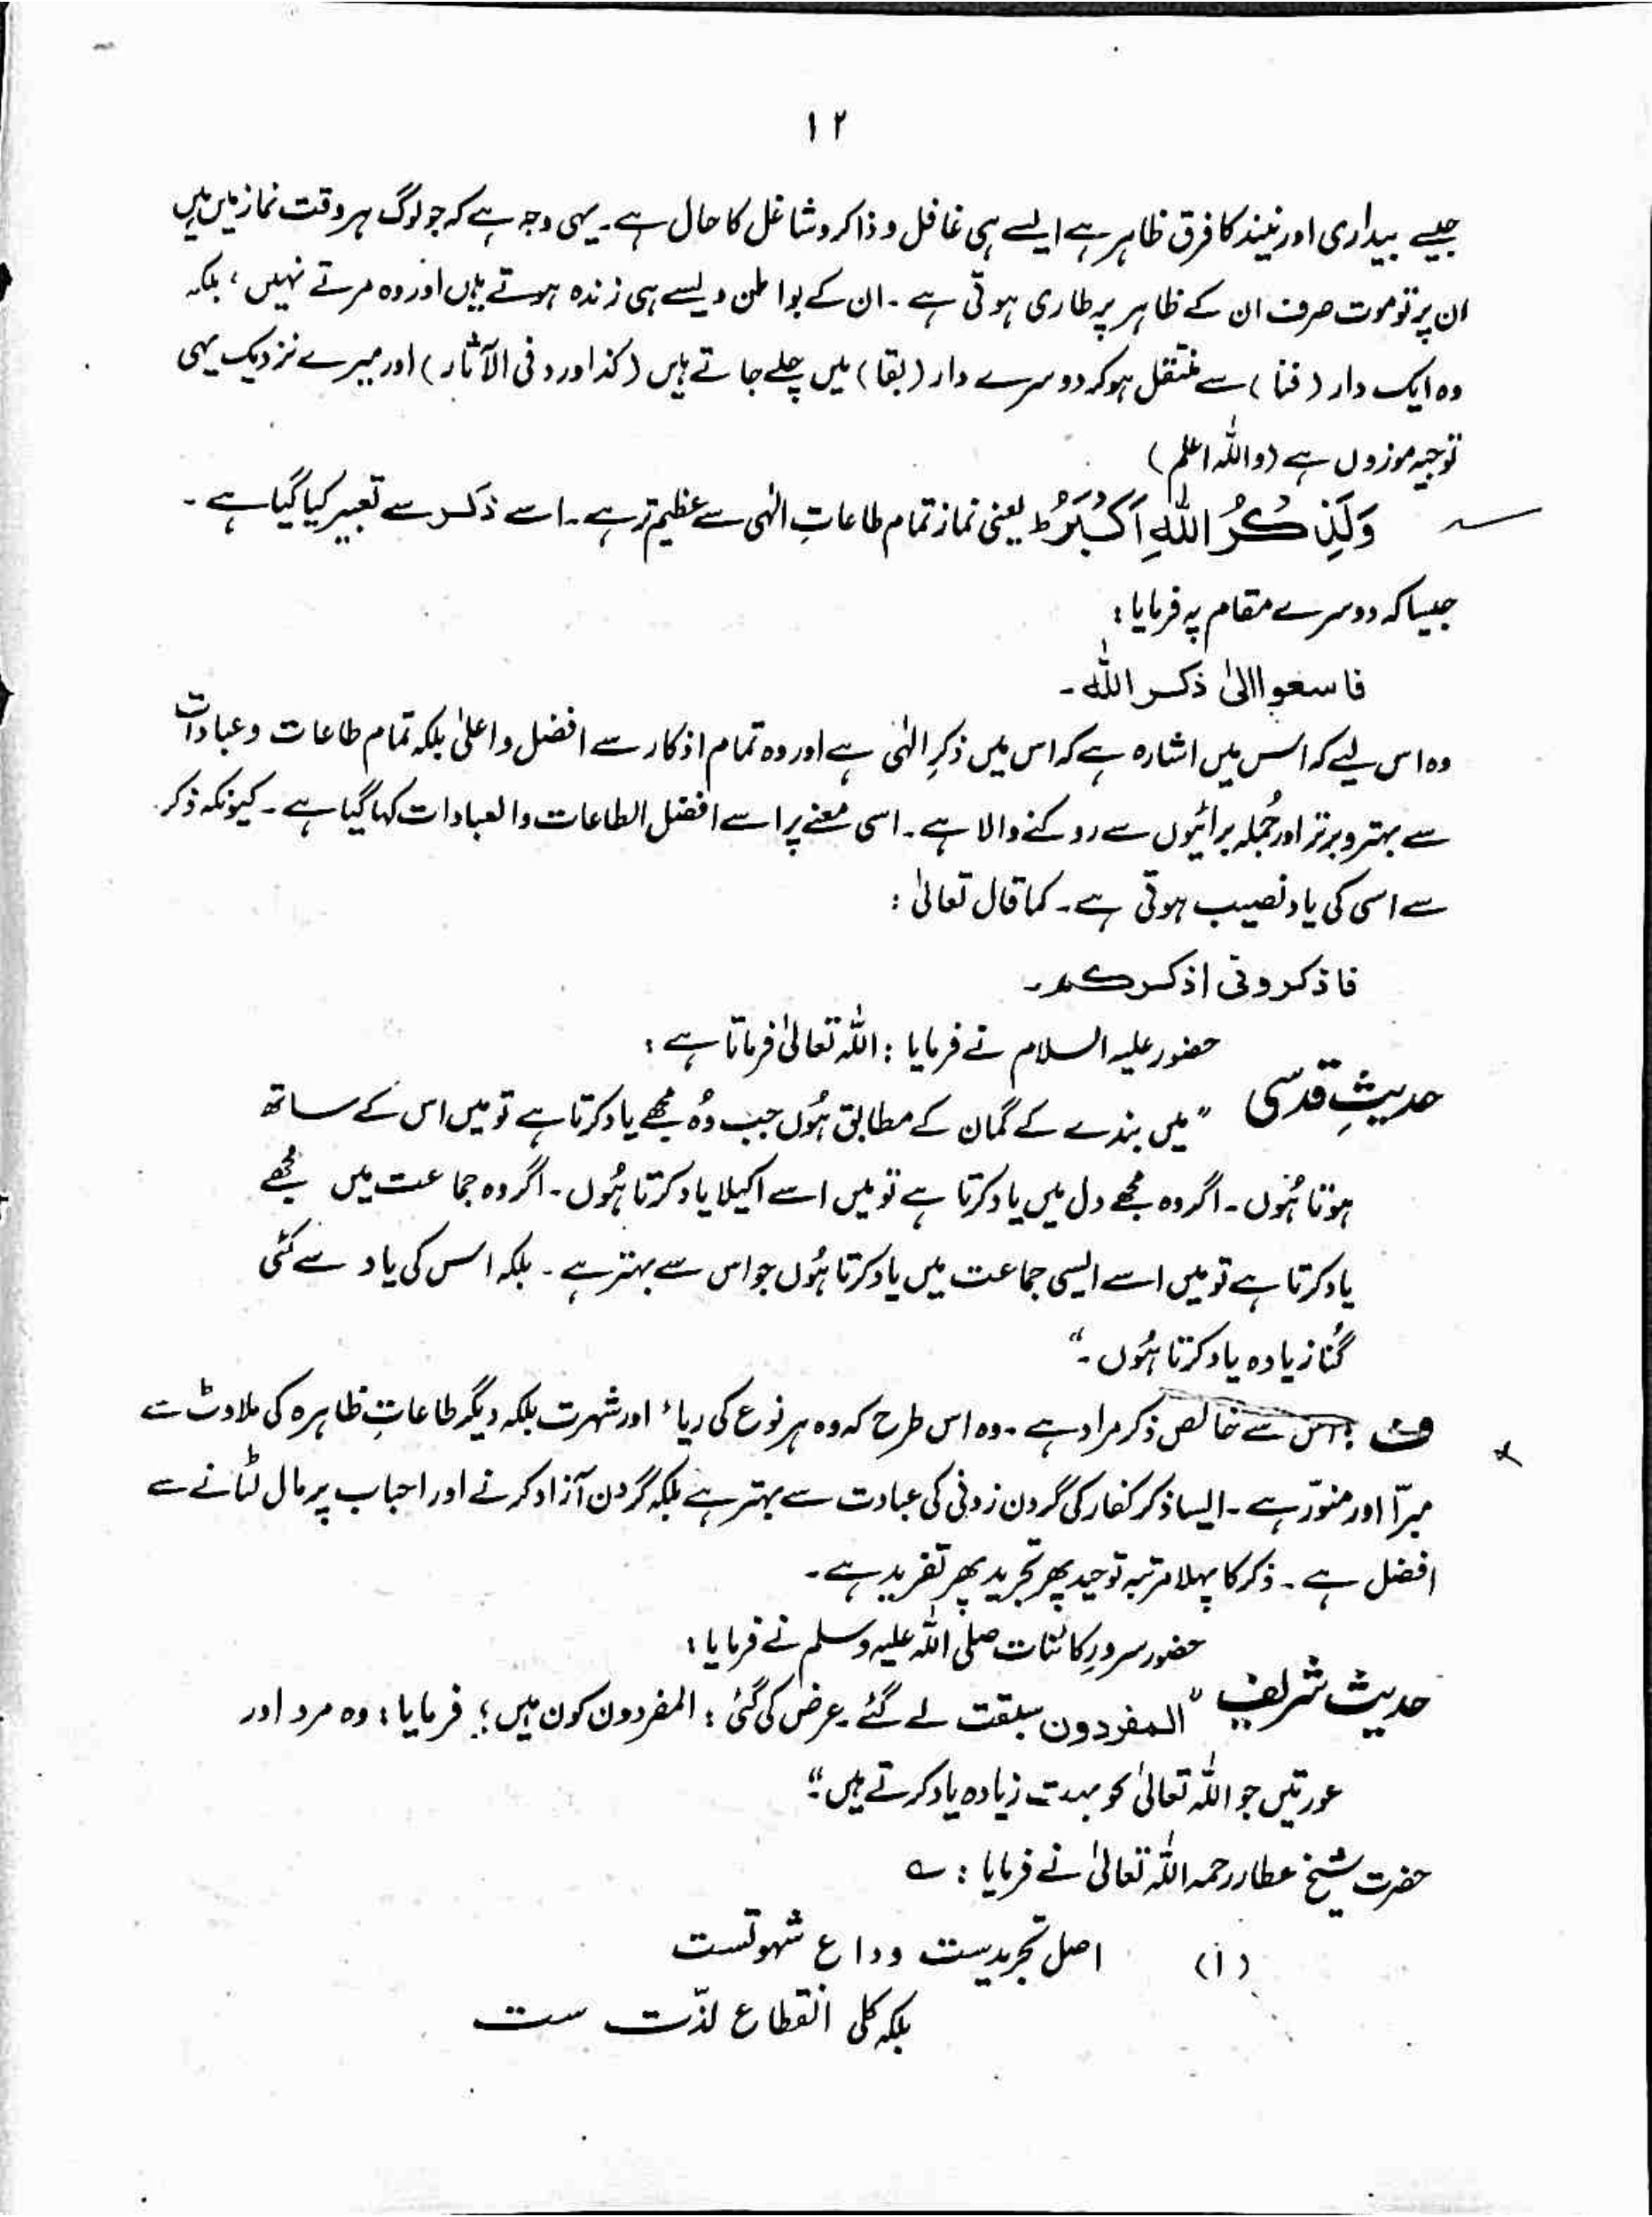 ۱۲
جیسے بیداری اور نیند کا فرق ظاہر ہے ایسے ہی غافل و ذاکر و شاغل کا حال ہے۔ یہی وجہ ہے کہ جو لوگ ہر وقت نماز میں ہیں
ان پر تو موت صرف ان کے ظاہر پر طاری ہوتی ہے۔ ان کے بواطن ویسے ہی زندہ ہوتے ہیں اور وہ مرتے نہیں، بلکہ
وہ ایک دار (فنا) سے منتقل ہو کر دوسرے دار (بقا) میں چلے جاتے ہیں (کذا ورد فی الآثار) اور میرے نزدیک یہی
توجیہ موزوں ہے (واللہ اعلم)
وَلَذِکْرُ اللّٰہِ اَکْبَرُ ط یعنی نماز تمام طاعاتِ الٰہی سے عظیم تر ہے۔ اسے ذکر سے تعبیر کیا گیا ہے۔
جیسا کہ دوسرے مقام پہ فرمایا:
فاسعوا الیٰ ذکر اللّٰہ۔
وہ اس لیے کہ اس میں اشارہ ہے کہ اس میں ذکرِ الٰہی ہے اور وہ تمام اذکار سے افضل و اعلیٰ بلکہ تمام طاعات و عبادات
سے بہتر و برتر اور جُملہ برائیوں سے روکنے والا ہے۔ اسی معنے پر اسے افضل الطاعات والعبادات کہا گیا ہے۔ کیونکہ ذکر
سے اسی کی یاد نصیب ہوتی ہے۔ کما قال تعالیٰ:
فاذکرونی اذکرکم۔
حضور علیہ السلام نے فرمایا: اللّٰہ تعالیٰ فرماتا ہے:
حدیثِ قدسی "میں بندے کے گمان کے مطابق ہُوں جب وُہ مجھے یاد کرتا ہے تو میں اس کے ساتھ
ہوتا ہُوں۔ اگر وہ مجھے دل میں یاد کرتا ہے تو میں اسے اکیلا یاد کرتا ہُوں۔ اگر وہ جماعت میں مجھے
یاد کرتا ہے تو میں اسے ایسی جماعت میں یاد کرتا ہُوں جو اس سے بہتر ہے۔ بلکہ اس کی یاد سے کئی
گُنا زیادہ یاد کرتا ہُوں۔"
ف: اس سے خالص ذکر مراد ہے۔ وہ اس طرح کہ وہ ہر نوع کی ریاء اور شہرت بلکہ دیگر طاعاتِ ظاہرہ کی ملاوٹ سے
مبرّا اور منوّر ہے۔ ایسا ذکر کفار کی گردن زدنی کی عبادت سے بہتر ہے بلکہ گردن آزاد کرنے اور احباب پر مال لٹانے سے
افضل ہے۔ ذکر کا پہلا مرتبہ توحید پھر تجرید پھر تفرید ہے۔
حضور سرورِ کائنات صلی اللّٰہ علیہ وسلم نے فرمایا:
حدیث شریف "المفردون سبقت لے گئے۔ عرض کی گئی: المفردون کون ہیں؟ فرمایا: وہ مرد اور
عورتیں جو اللّٰہ تعالیٰ کو بہت زیادہ یاد کرتے ہیں۔"
حضرت شیخ عطار رحمہ اللّٰہ تعالیٰ نے فرمایا: ؎
(۱) اصل تجریدست وداع شہوتست
بلکہ کلی انقطاع لذّت ست